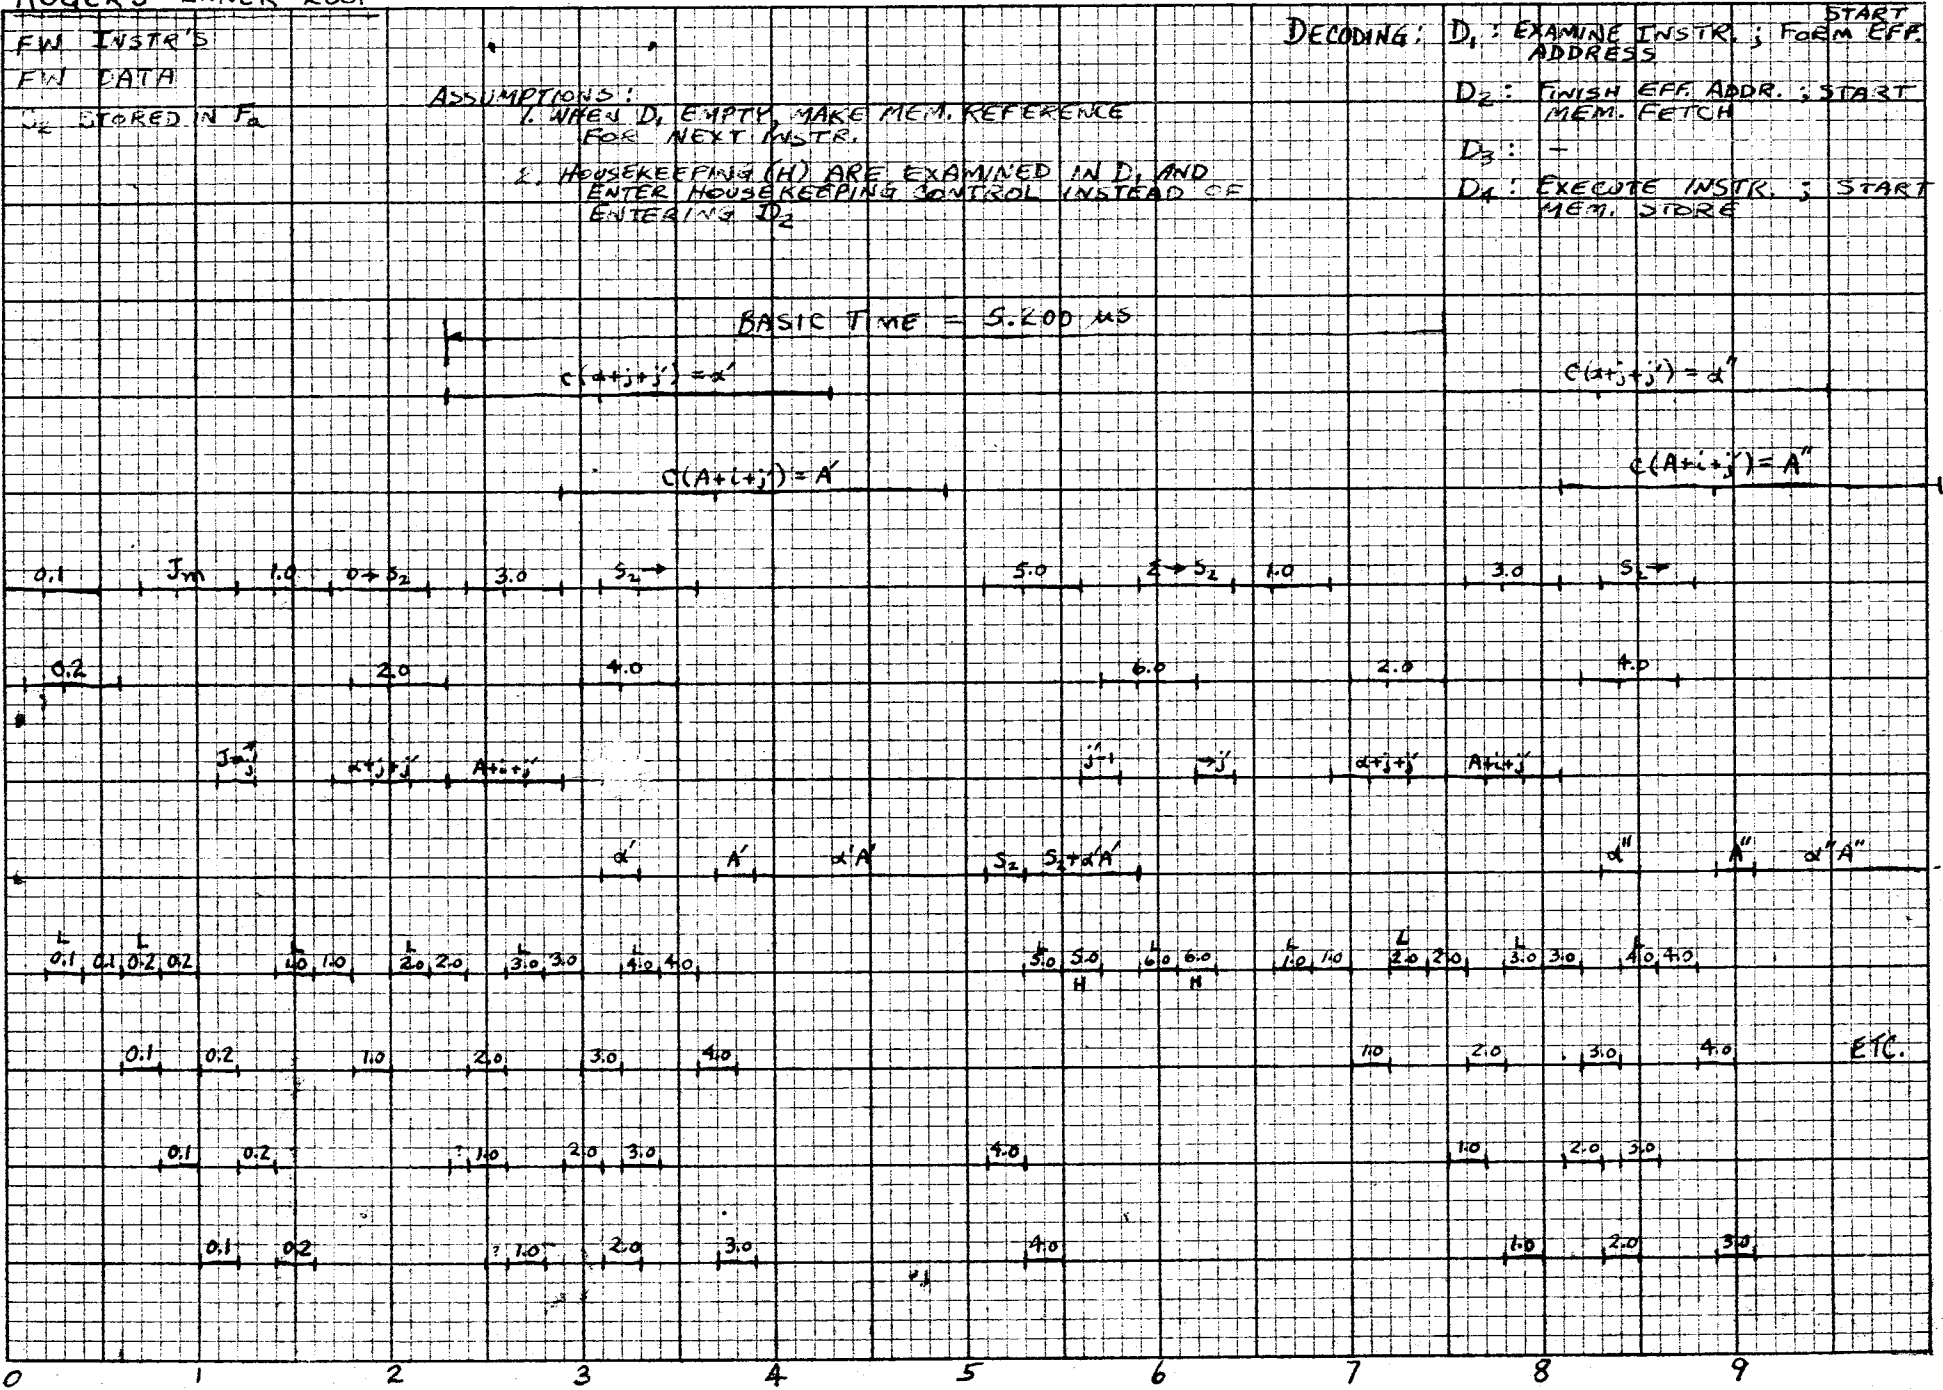 FW INSTR'S
FW DATA
S₂ STORED IN Fa
ASSUMPTIONS:
1. WHEN D₁ EMPTY, MAKE MEM. REFERENCE
FOR NEXT INSTR.
2. HOUSEKEEPING (H) ARE EXAMINED IN D₁ AND
ENTER HOUSEKEEPING CONTROL INSTEAD OF
ENTERING D₂
START
DECODING: D₁: EXAMINE INSTR.; FORM EFF.
ADDRESS
D₂: FINISH EFF. ADDR.; START
MEM. FETCH
D₃: -
D₄: EXECUTE INSTR.; START
MEM. STORE
BASIC TIME = 5.200 μs
C(α+j+j') = α' C(α+j+j') = α"
C(A+i+j') = A' C(A+i+j') = A"
0.1 Jm 1.0 0→S₂ 3.0 S₂→ 5.0 Σ→S₂ 1.0 3.0 S₂→
0.2 2.0 4.0 6.0 2.0 4.0
α+j+j' A+i+j' j'-1 →j' α+j+j' A+i+j'
α' A' α'A' S₂ S₂+α'A' α" A" α"A"
L L L L L L L L L L L L
0.1 0.1 0.2 0.2 1.0 1.0 2.0 2.0 3.0 3.0 4.0 4.0 5.0 5.0 6.0 6.0 1.0 1.0 2.0 2.0 3.0 3.0 4.0 4.0
H H
0.1 0.2 1.0 2.0 3.0 4.0 1.0 2.0 3.0 4.0 ETC.
0.1 0.2 ? 1.0 2.0 3.0 4.0 1.0 2.0 3.0
0.1 0.2 ? 1.0 2.0 3.0 4.0 1.0 2.0 3.0
0 1 2 3 4 5 6 7 8 9